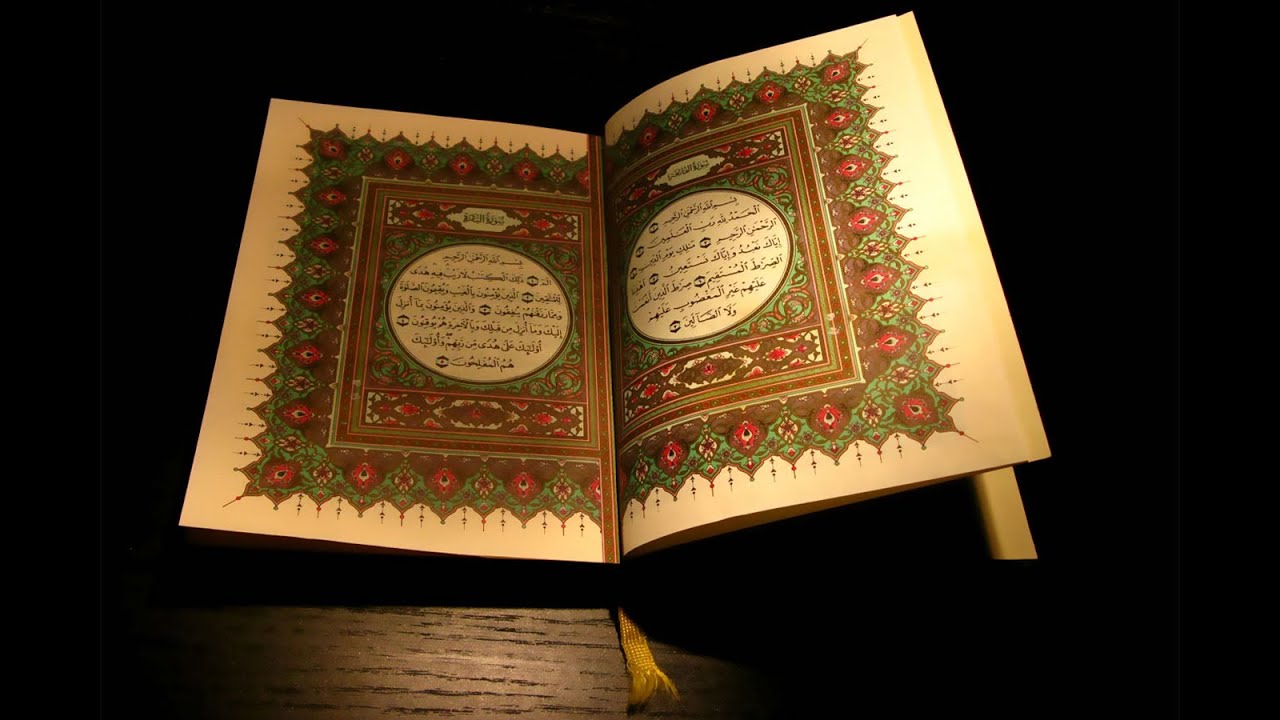 سُورَةُ الفَاتِحَةِ
بِسْمِ اللَّهِ الرَّحْمَٰنِ الرَّحِيمِ
الْحَمْدُ لِلَّهِ رَبِّ الْعَالَمِينَ
الرَّحْمَٰنِ الرَّحِيمِ مَالِكِ يَوْمِ الدِّينِ
إِيَّاكَ نَعْبُدُ وَإِيَّاكَ نَسْتَعِينُ اهْدِنَا
الصِّرَاطَ الْمُسْتَقِيمَ صِرَاطَ الَّذِينَ أَنْعَمْتَ
عَلَيْهِمْ غَيْرِ الْمَغْضُوبِ عَلَيْهِمْ
وَلَا الضَّالِّينَ
سُورَةُ البَقَرَةِ
بِسْمِ اللَّهِ الرَّحْمَٰنِ الرَّحِيمِ
الم ذَٰلِكَ الْكِتَابُ لَا رَيْبَ فِيهِ هُدًى
لِلْمُتَّقِينَ الَّذِينَ يُؤْمِنُونَ بِالْغَيْبِ وَيُقِيمُونَ الصَّلَوٰةَ
وَمِمَّا رَزَقْنَاهُمْ يُنْفِقُونَ وَالَّذِينَ يُؤْمِنُونَ بِمَا أُنْزِلَ
إِلَيْكَ وَمَا أُنْزِلَ مِنْ قَبْلِكَ وَبِالْآخِرَةِ هُمْ يُوقِنُونَ
أُولَٰئِكَ عَلَىٰ هُدًى مِنْ رَبِّهِمْ وَأُولَٰئِكَ
هُمُ الْمُفْلِحُونَ